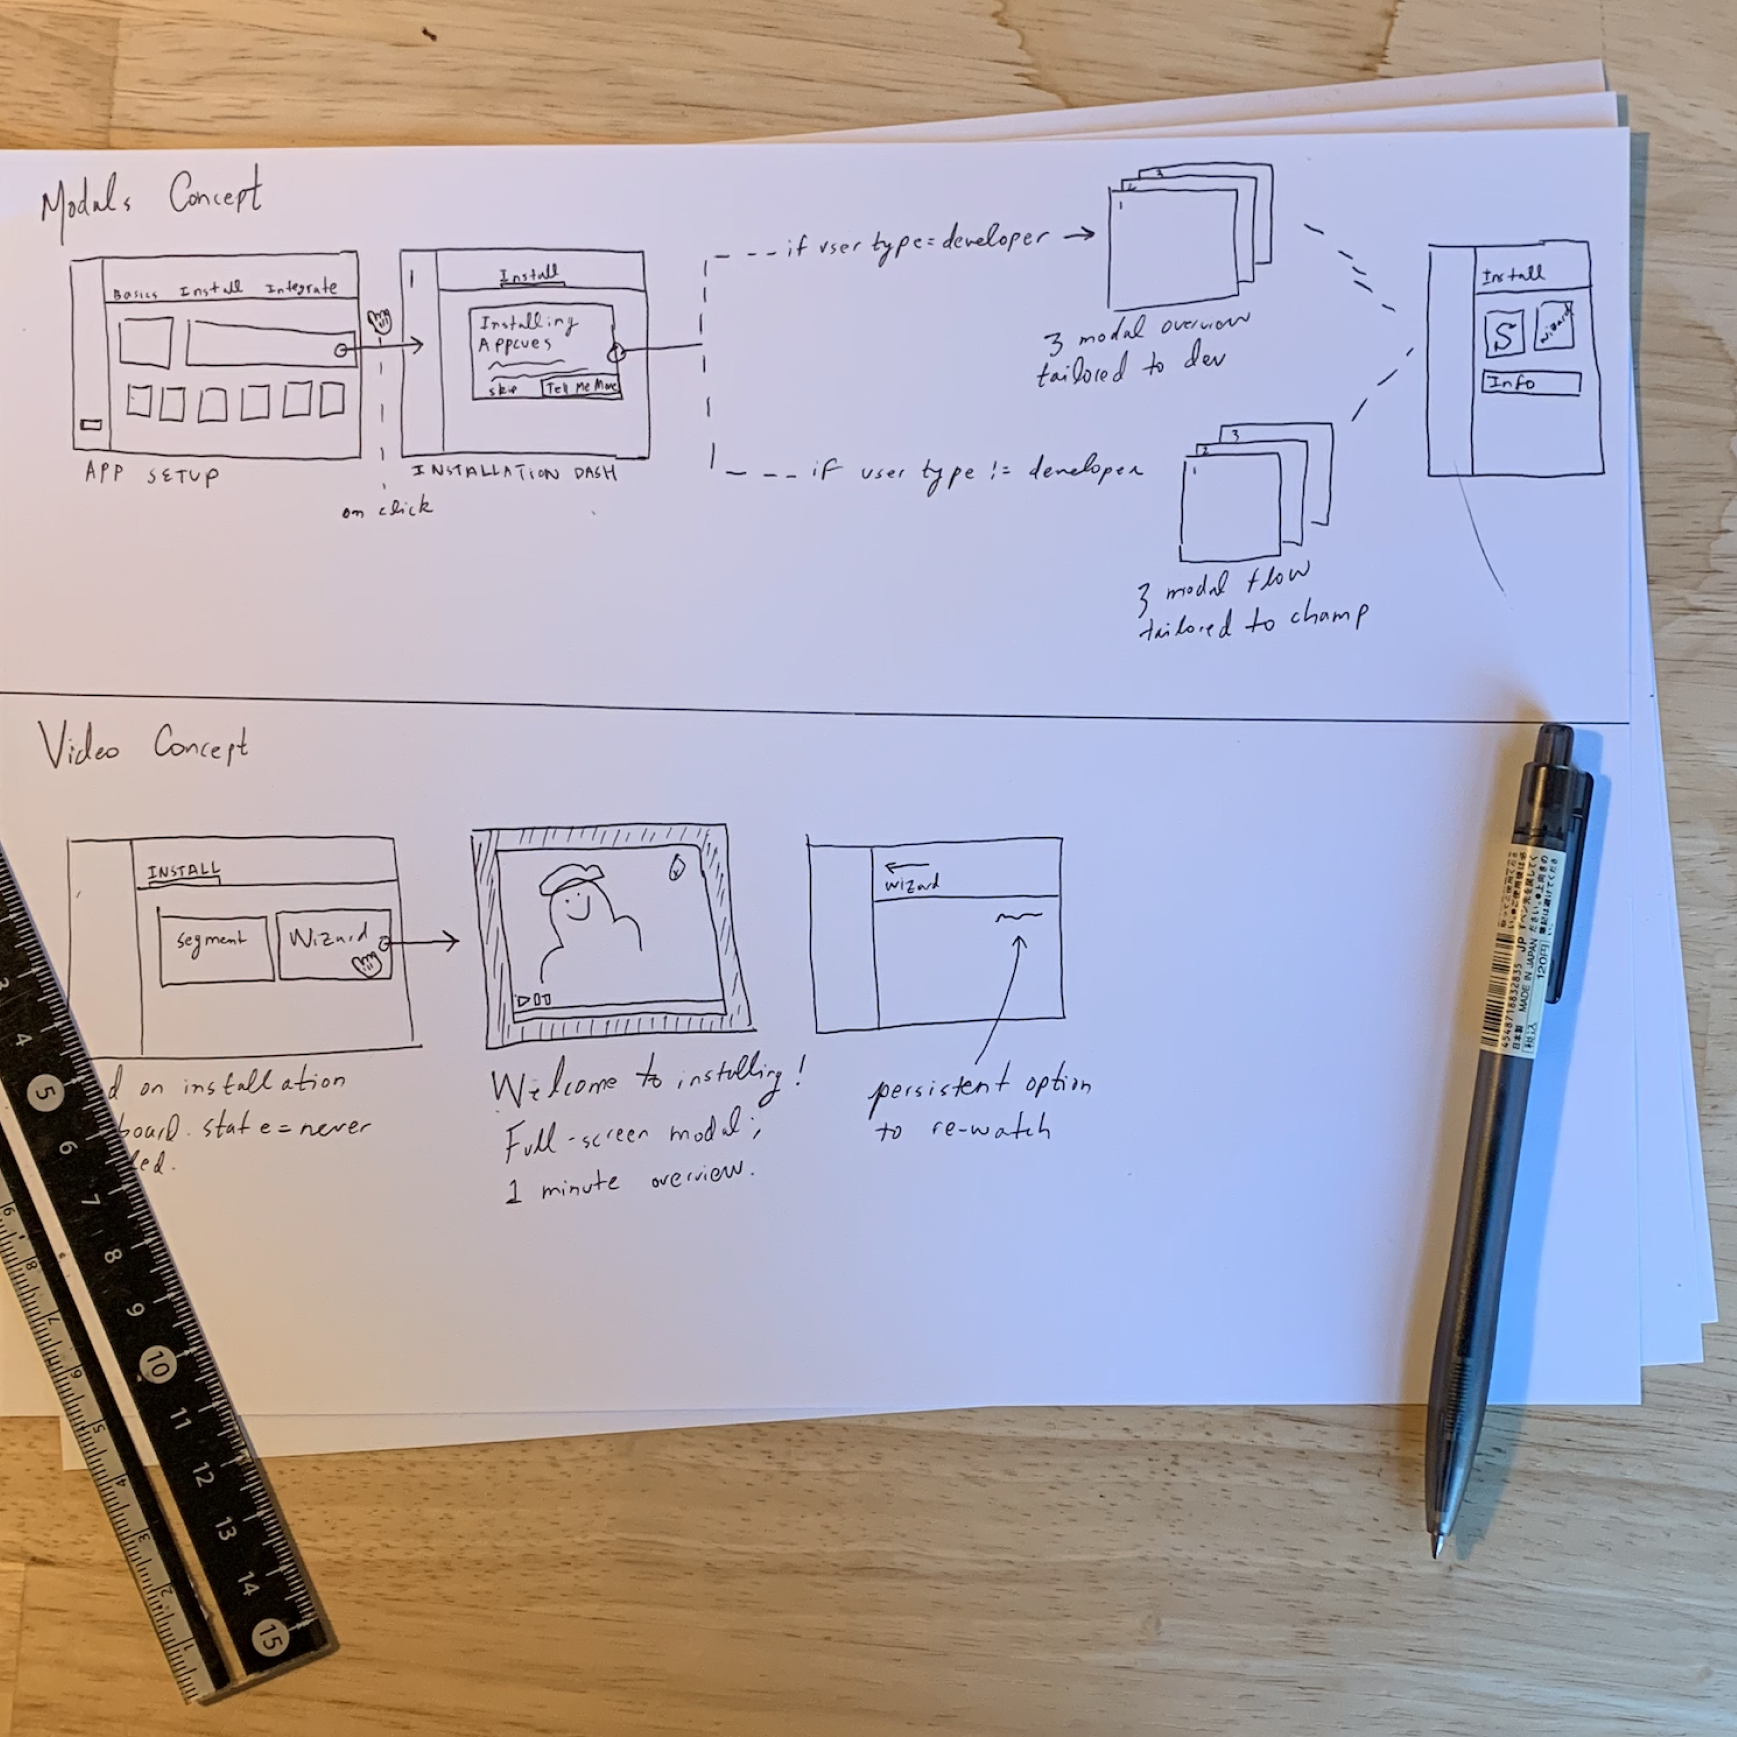 Modals Concept
Basics Install Integrate
APP SETUP
on click
Install
Installing
Appcues
skip Tell Me More
INSTALLATION DASH
if user type = developer
1
2
3
3 modal overview
tailored to dev
if user type != developer
1
2
3
3 modal flow
tailored to champ
Install
S wizard
Info
Video Concept
INSTALL
segment Wizard
d on installation
board. state = never
led.
x
Welcome to installing!
Full-screen modal;
1 minute overview.
wizard
persistent option
to re-watch
3
4
5
6
7
8
9
10
11
12
13
14
15
9
8
7
6
5
4
3
2
1
4548718832835
日本製 MADE IN JAPAN JP
税込 120円